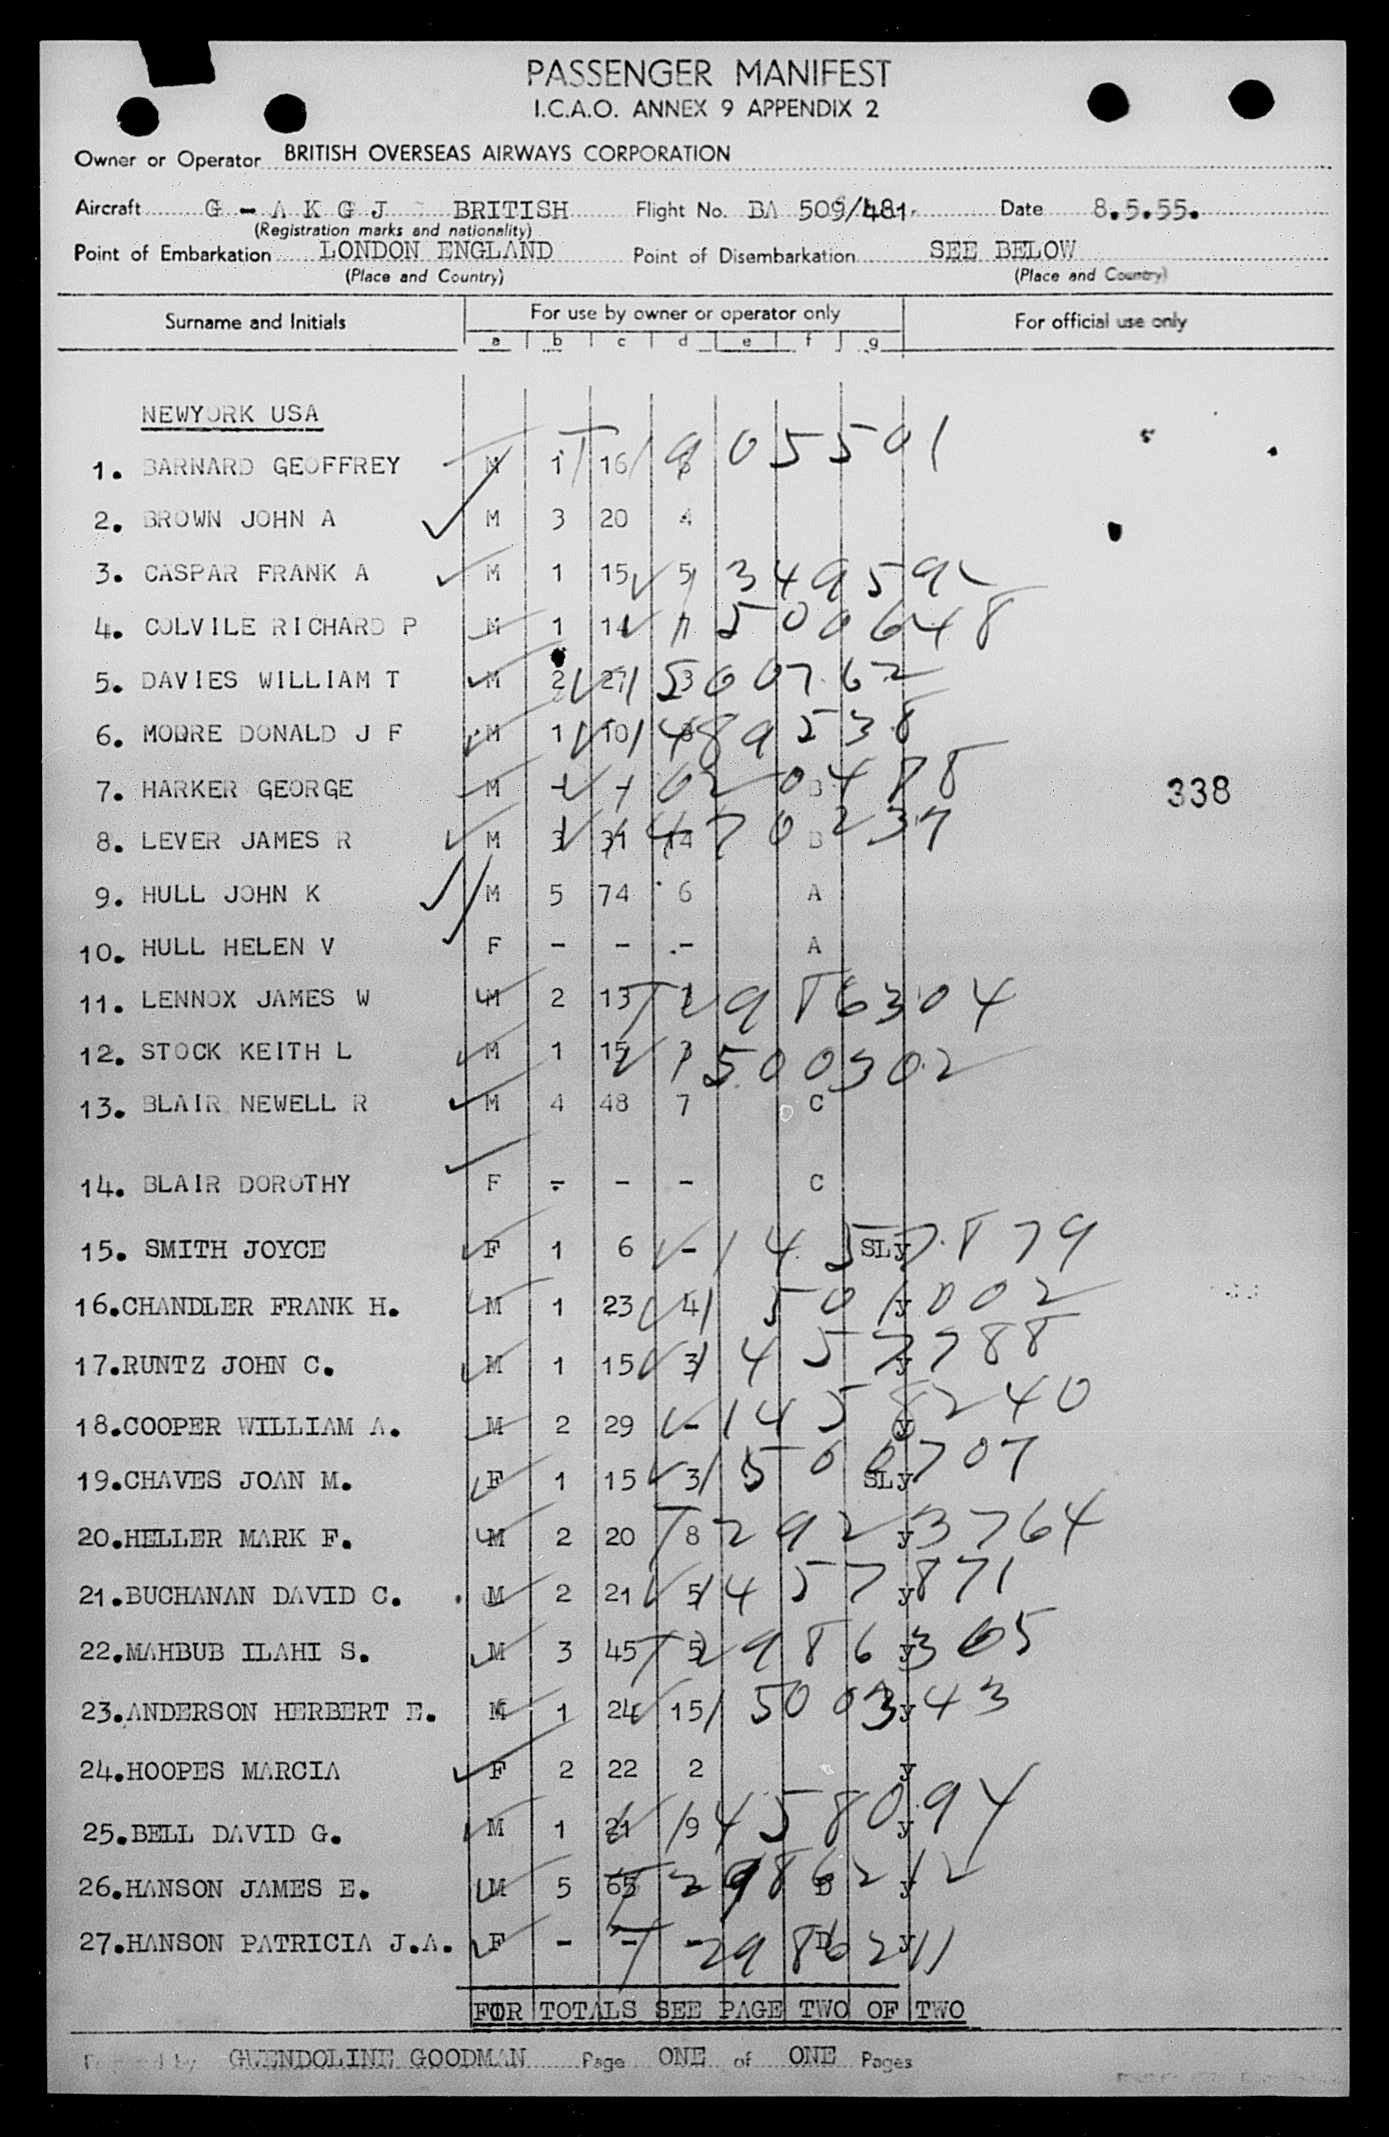 PASSENGER MANIFEST
I.C.A.O. ANNEX 9 APPENDIX 2
Owner or Operator BRITISH OVERSEAS AIRWAYS CORPORATION
Aircraft G - A K G J BRITISH Flight No. BA 509/481. Date 8.5.55.
(Registration marks and nationality)
Point of Embarkation LONDON ENGLAND Point of Disembarkation SEE BELOW
(Place and Country) (Place and Country)
Surname and Initials For use by owner or operator only For official use only
a b c d e f g
NEWYORK USA
1. BARNARD GEOFFREY M 1 16 T1905501
2. BROWN JOHN A M 3 20 4
3. CASPAR FRANK A M 1 15 5 349592
4. COLVILE RICHARD P M 1 14 1500648
5. DAVIES WILLIAM T M 2 27 3 1500762
6. MOORE DONALD J F M 1 10 1489538
7. HARKER GEORGE M - B 1020478
8. LEVER JAMES R M 3 31 14 B 1470237
9. HULL JOHN K M 5 74 6 A
10. HULL HELEN V F - - - A
11. LENNOX JAMES W M 2 13 T2986304
12. STOCK KEITH L M 1 15 3 1500302
13. BLAIR NEWELL R M 4 48 7 C
14. BLAIR DOROTHY F - - - C
15. SMITH JOYCE F 1 6 - SLy 1457879
16. CHANDLER FRANK H. M 1 23 4 y 1501002
17. RUNTZ JOHN C. M 1 15 3 y 1457788
18. COOPER WILLIAM A. M 2 29 - y 1458240
19. CHAVES JOAN M. F 1 15 3 SLy 1500707
20. HELLER MARK F. M 2 20 8 y T2923764
21. BUCHANAN DAVID C. M 2 21 5 y 1457871
22. MAHBUB ILAHI S. M 3 45 5 y T2986305
23. ANDERSON HERBERT E. M 1 24 15 y 1500343
24. HOOPES MARCIA F 2 22 2 y
25. BELL DAVID G. M 1 21 9 y 1458094
26. HANSON JAMES E. M 5 65 D y T2986212
27. HANSON PATRICIA J.A. F - - - D y T2986211
338
FOR TOTALS SEE PAGE TWO OF TWO
GWENDOLINE GOODMAN Page ONE of ONE Pages